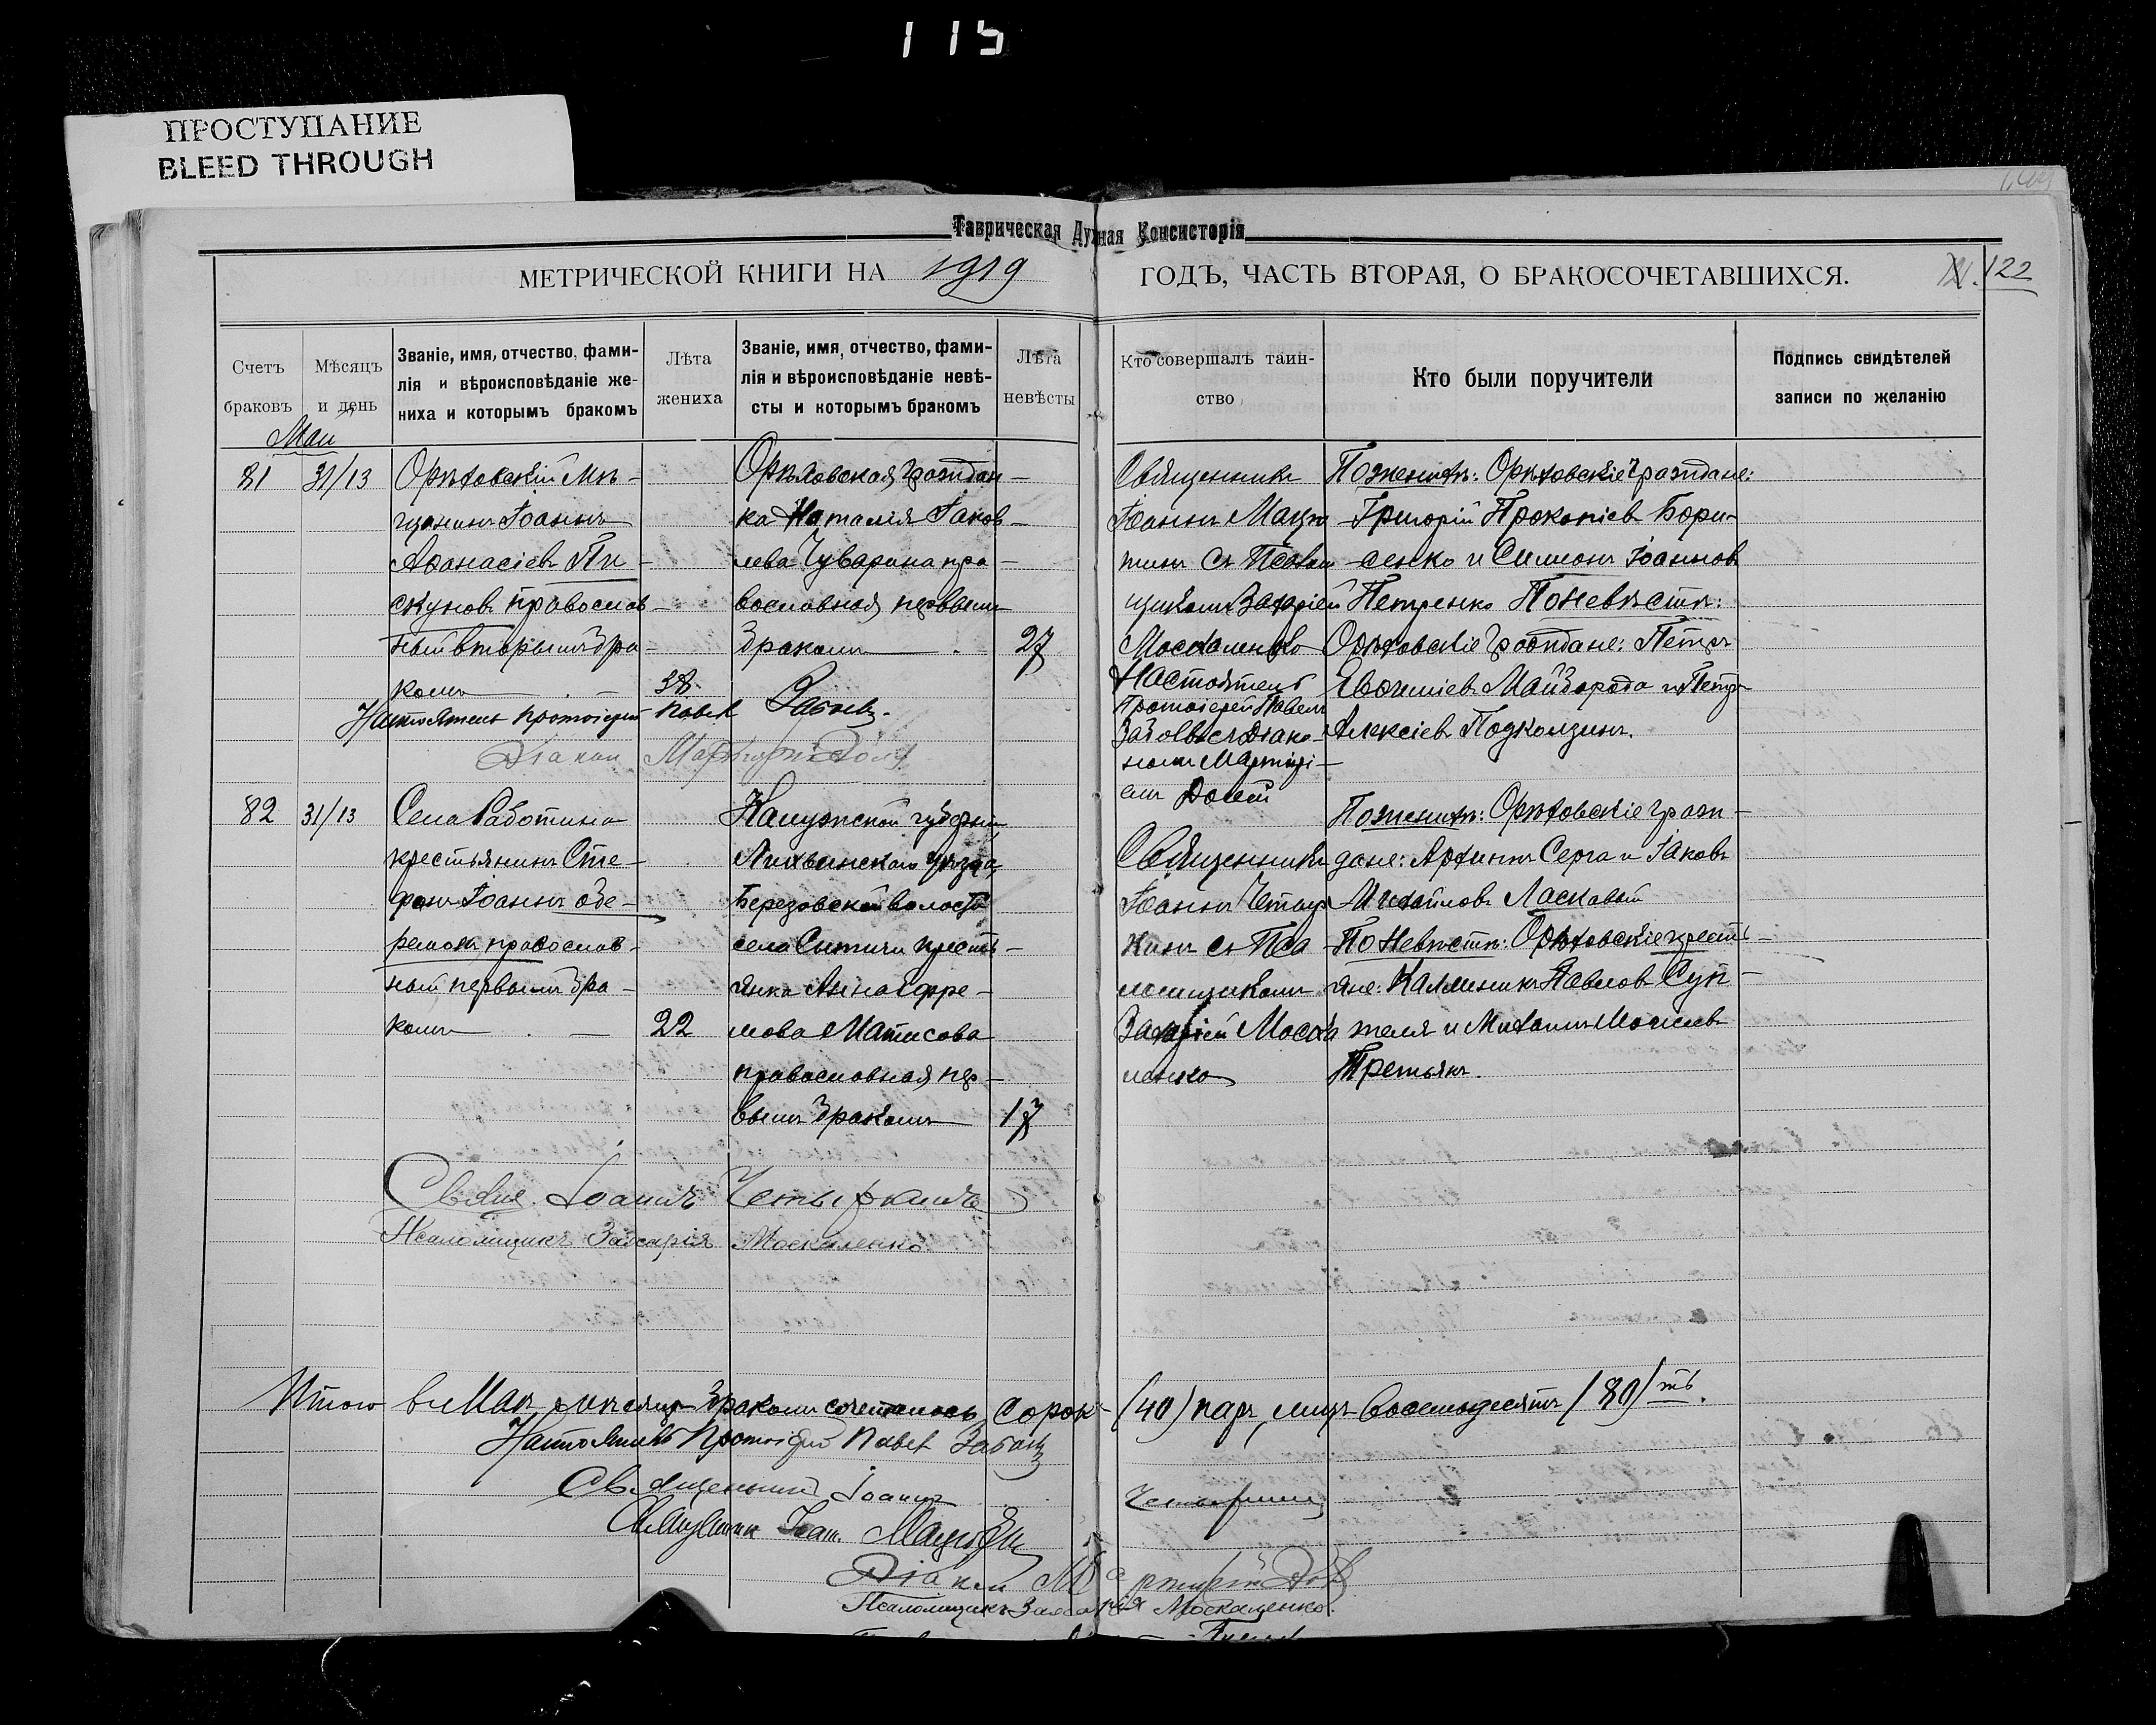 115
ПРОСТУПАНИЕ
BLEED THROUGH
Таврическая Духная Консисторія
МЕТРИЧЕСКОЙ КНИГИ НА 1919
ГОДЪ, ЧАСТЬ ВТОРАЯ, О БРАКОСОЧЕТАВШИХСЯ.
122
Счетъ браковъ
Мѣсяцъ и день
Званіе, имя, отчество, фами-
лія и вѣроисповѣданіе же-
ниха и которымъ бракомъ
Лѣта жениха
Званіе, имя, отчество, фами-
лія и вѣроисповѣданіе невѣ-
сты и которымъ бракомъ
Лѣта невѣсты
Кто совершалъ таин-
ство
Кто были поручители
Подпись свидѣтелей
записи по желанію
Май
81
31/13
Орѣховскій мѣ-
щанинъ Іоаннъ
Аѳанасіевъ Пи-
скуновъ православ-
ный вторымъ бра-
комъ
38
Орѣховская граждан-
ка Наталія Іаков-
лева Чуварина пра-
вославная, первымъ
бракомъ
27
Священникъ
Іоаннъ Мацю-
тинъ съ Псалом-
щикомъ Захаріей
Москаленко
Настоятель
Протоіерей Павелъ
съ Діако-
номъ Мартирі-
емъ Долей
По женихѣ: Орѣховскіе граждане:
Григорій Прокопіевъ Бори-
сенко и Симеонъ Іоанновъ
Петренко По невѣстѣ:
Орѣховскіе граждане: Петръ
Евѳиміевъ Майборода и Петръ
Алексіевъ Подколзинъ.
Настоятель протоіерей Павел
Діакон Мартирій
82
31/13
Села Работина
крестьянинъ Сте-
фанъ Іоанновъ Обе-
ремокъ, православ-
ный первымъ бра-
комъ
22
Калужской губерніи
Лихвинскаго уѣзда,
Березовской волости
села Ситичи кресть-
янка Анна Ефре-
мова Матисова
православная пер-
вымъ бракомъ
17
Священникъ
Іоаннъ Четыр
кинъ съ Пса
ломщикомъ
Захаріей Моска
ленко
По женихѣ: Орѣховскіе граж-
дане: Архиппъ Серга и Іаковъ
Михайловъ Ласкавый
По невѣстѣ: Орѣховскіе кресть-
яне: Каллиникъ Павловъ Суп-
теля и Михаилъ Моисеевъ
Третьякъ.
Свящ. Іоаннъ Четыркинъ
Псаломщикъ Захарія Москаленко
Итого въ Маѣ мѣсяцѣ бракомъ сочеталось сорок- (40) паръ, лицъ восемьдесятъ (80)ть.
Настоятель Протоіерей Павел
Священникъ Іоаннъ Четыркинъ
Священник Іоан.
Діакон Мартирій
Псаломщикъ Захарія Москаленко.